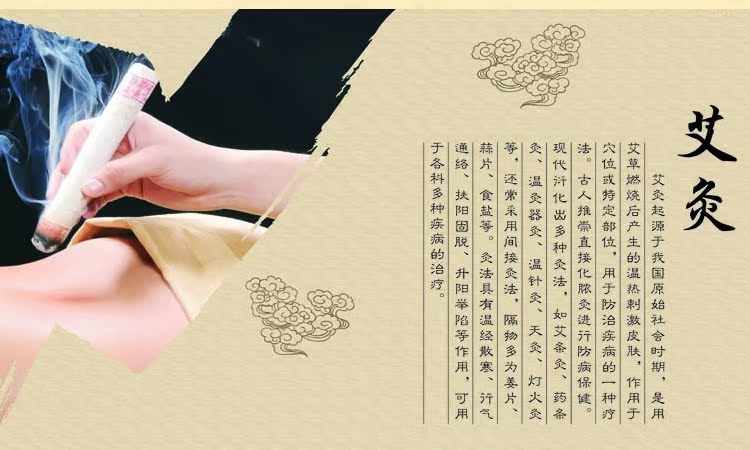 艾灸
艾灸起源于我国原始社会时期，是用
艾草燃烧后产生的温热刺激皮肤，作用于
穴位或特定部位，用于防治疾病的一种疗
法。古人推崇直接化脓灸进行防病保健。
现代衍化出多种灸法，如艾条灸、药条
灸、温灸器灸、温针灸、天灸、灯火灸
等，还常采用间接灸法，隔物多为姜片、
蒜片、食盐等。灸法具有温经散寒、行气
通络、扶阳固脱、升阳举陷等作用，可用
于各科多种疾病的治疗。